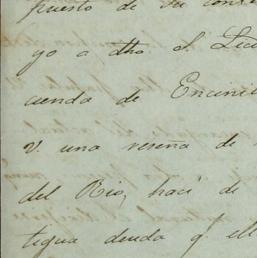 puesto de su cons
yo a dho S. Lic
cienda de Encini
V. una reseña de
del Rio, haci de
tigua deuda qe ell